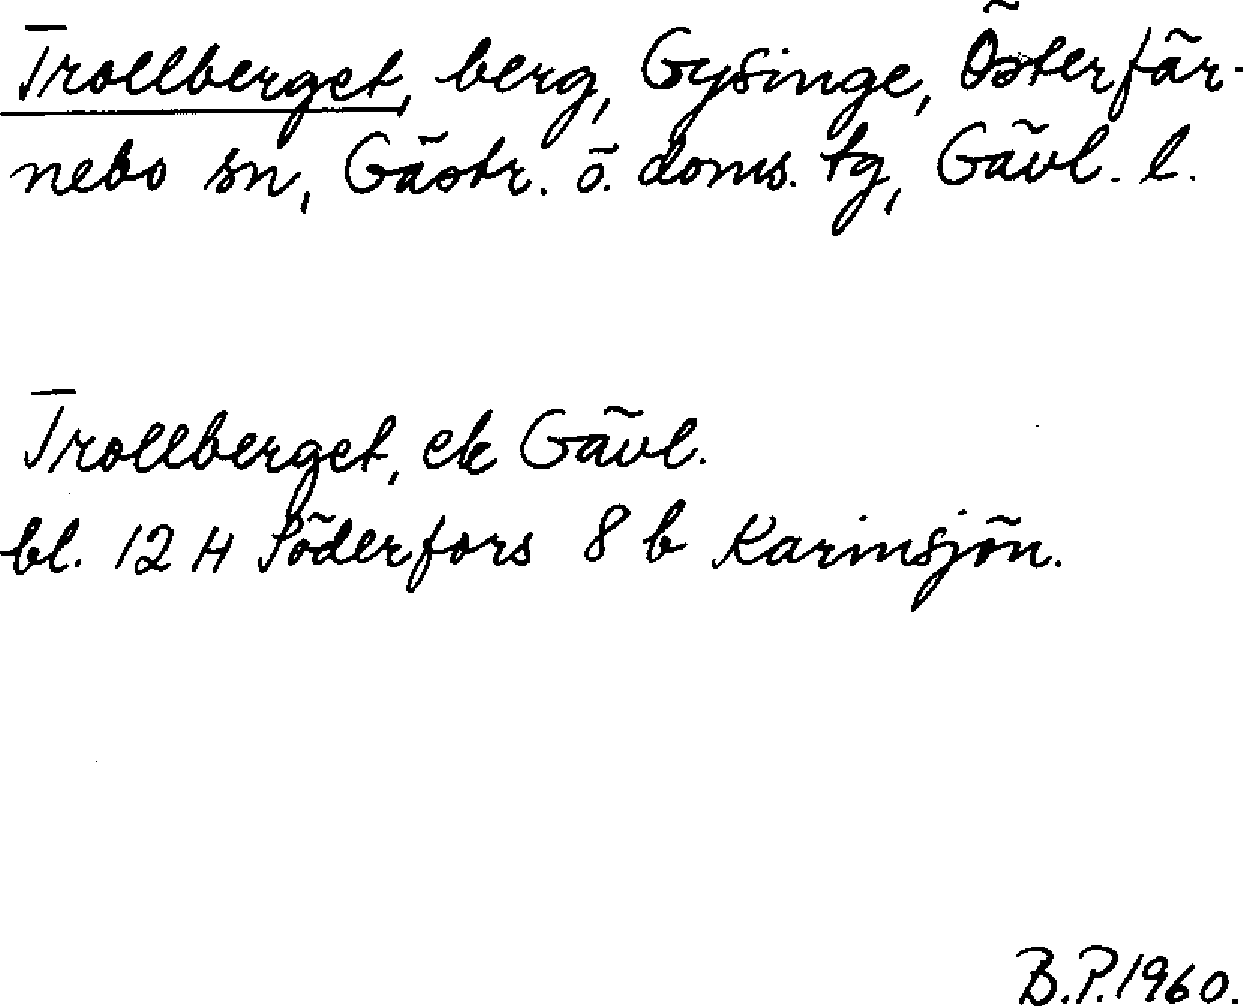 Trollberget, berg, Gysinge, Österfär-
nebo sn, Gästr. ö. doms. tg, Gävl. l.
Trollberget, ek Gävl.
bl. 12 H Söderfors 8 b Karinsjön.
B.P. 1960.